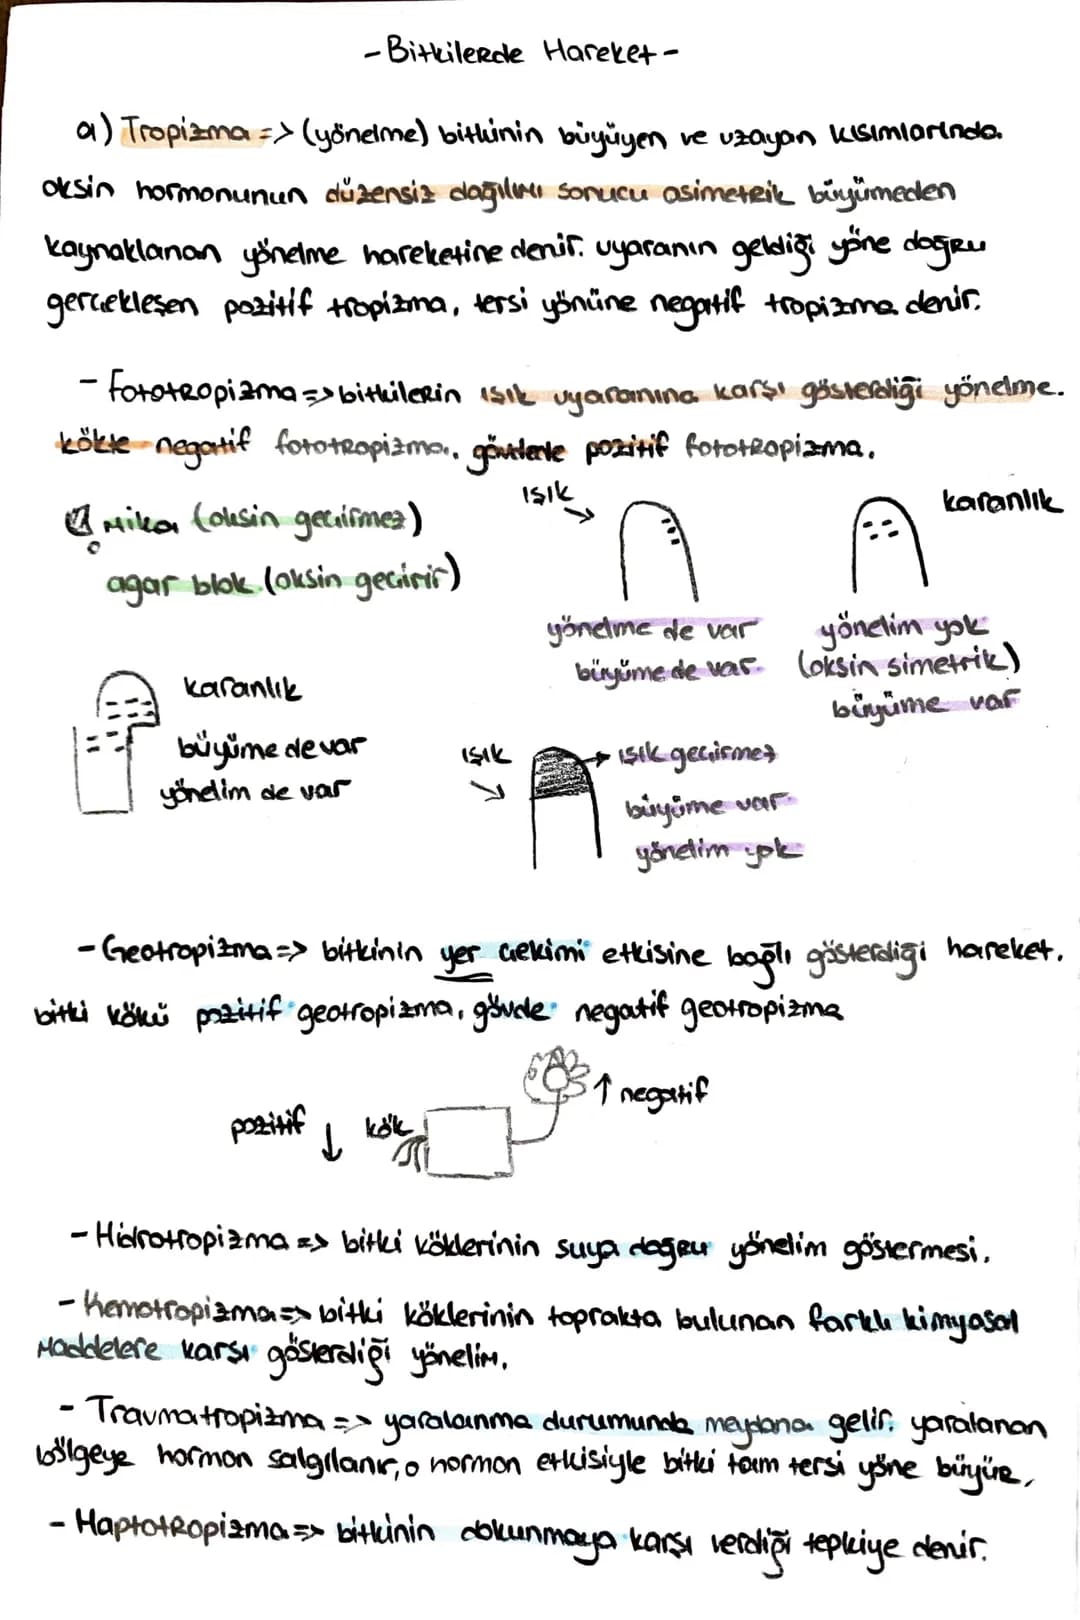 - Bitkilerde Hareket -
a) Tropizma => (yönelme) bitkinin büyüyen ve uzayan kısımlarında
oksin hormonunun düzensiz dağılımı sonucu asimetrik büyümeden
kaynaklanan yönelme hareketine denir. uyaranın geldiği yöne doğru
gerçekleşen pozitif tropizma, tersi yönüne negatif tropizma denir.
- Fototropizma => bitkilerin ışık uyaranına karşı gösterdiği yönelme.
kökte negatif fototropizma, gövdede pozitif fototropizma.
Mika (oksin geçirmez)
agar blok (oksin geçirir)
ışık
karanlık
yönelme de var
büyüme de var.
yönelim yok
(oksin simetrik)
büyüme var
karanlık
büyüme de var
yönelim de var
ışık
ışık geçirmez
büyüme var
yönelim yok
- Geotropizma => bitkinin yer çekimi etkisine bağlı gösterdiği hareket.
bitki kökü pozitif geotropizma, gövde negatif geotropizma
↑ negatif
pozitif ↓ kök
- Hidrotropizma => bitki köklerinin suya doğru yönelim göstermesi.
- Kemotropizma => bitki köklerinin toprakta bulunan farklı kimyasal
maddelere karşı gösterdiği yönelim.
- Travmatropizma => yaralanma durumunda meydana gelir. yaralanan
bölgeye hormon salgılanır, o hormon etkisiyle bitki tam tersi yöne büyür.
- Haptotropizma => bitkinin dokunmaya karşı verdiği tepkiye denir.